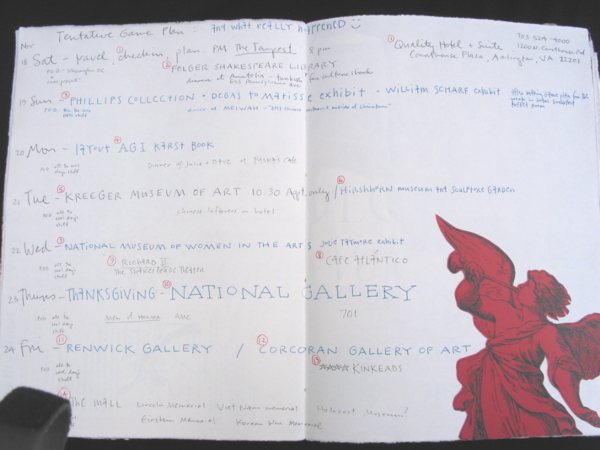 Tentative Game Plan: and what really happened
Nov
① Quality Hotel + Suite 703 524-4000
1200 N. Courthouse Rd
Courthouse Plaza, Arlington, VA 22201
18 Sat - travel, checkin, plan. PM The Tempest 8 pm
② FOLGER SHAKESPEARE LIBRARY
19 Sun - ③ PHILLIPS COLLECTION • DEGAS to MATISSE exhibit • WILLIAM SCHARF exhibit
dinner at MEIWAH
20 Mon - ④ layout AGI KARST BOOK
Dinner w/ Julie + Dave at PASHA'S CAFE
21 Tue - ⑤ KREEGER MUSEUM OF ART 10:30 Appt. only / ⑥ Hirshhorn museum and sculpture GARDEN
chinese leftovers in hotel
22 Wed - ⑦ NATIONAL MUSEUM OF WOMEN IN THE ARTS Julie TAYMORE exhibit
⑧ CAFE ATLÁNTICO
⑨ RICHARD II
The SHAKESPEARE THEATER
23 Thurs - THANKSGIVING - ⑩ NATIONAL GALLERY
Men of Honor AMC
701
24 Fri - ⑪ RENWICK GALLERY / ⑫ CORCORAN GALLERY OF ART
⑬ KINKEADS
⑭ The MALL Lincoln Memorial Viet Nam memorial Holocaust Museum?
Einstein Memorial Korean War Memorial